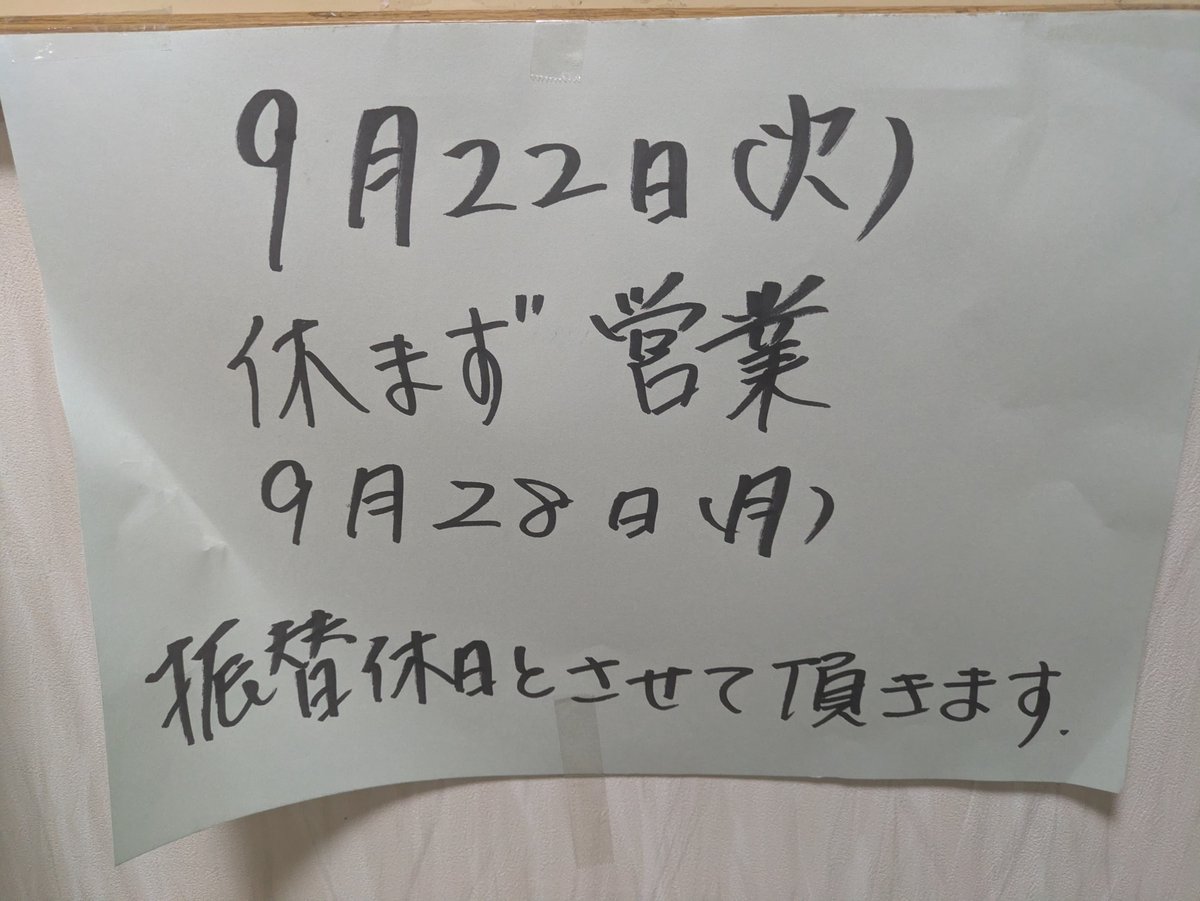 9月22日(火)
休まず営業
9月28日(月)
振替休日とさせて頂きます.